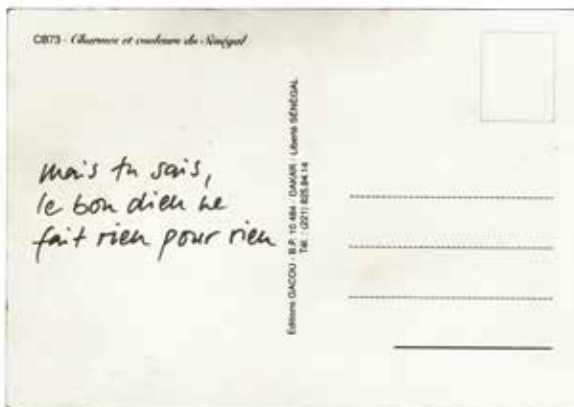 CB73 - Charmes et couleurs du Sénégal
mais tu sais,
le bon dieu ne
fait rien pour rien
Editions GACOU - B.P. 10 484 - DAKAR - Liberté SÉNÉGAL
Tél. : (221) 825.84.14